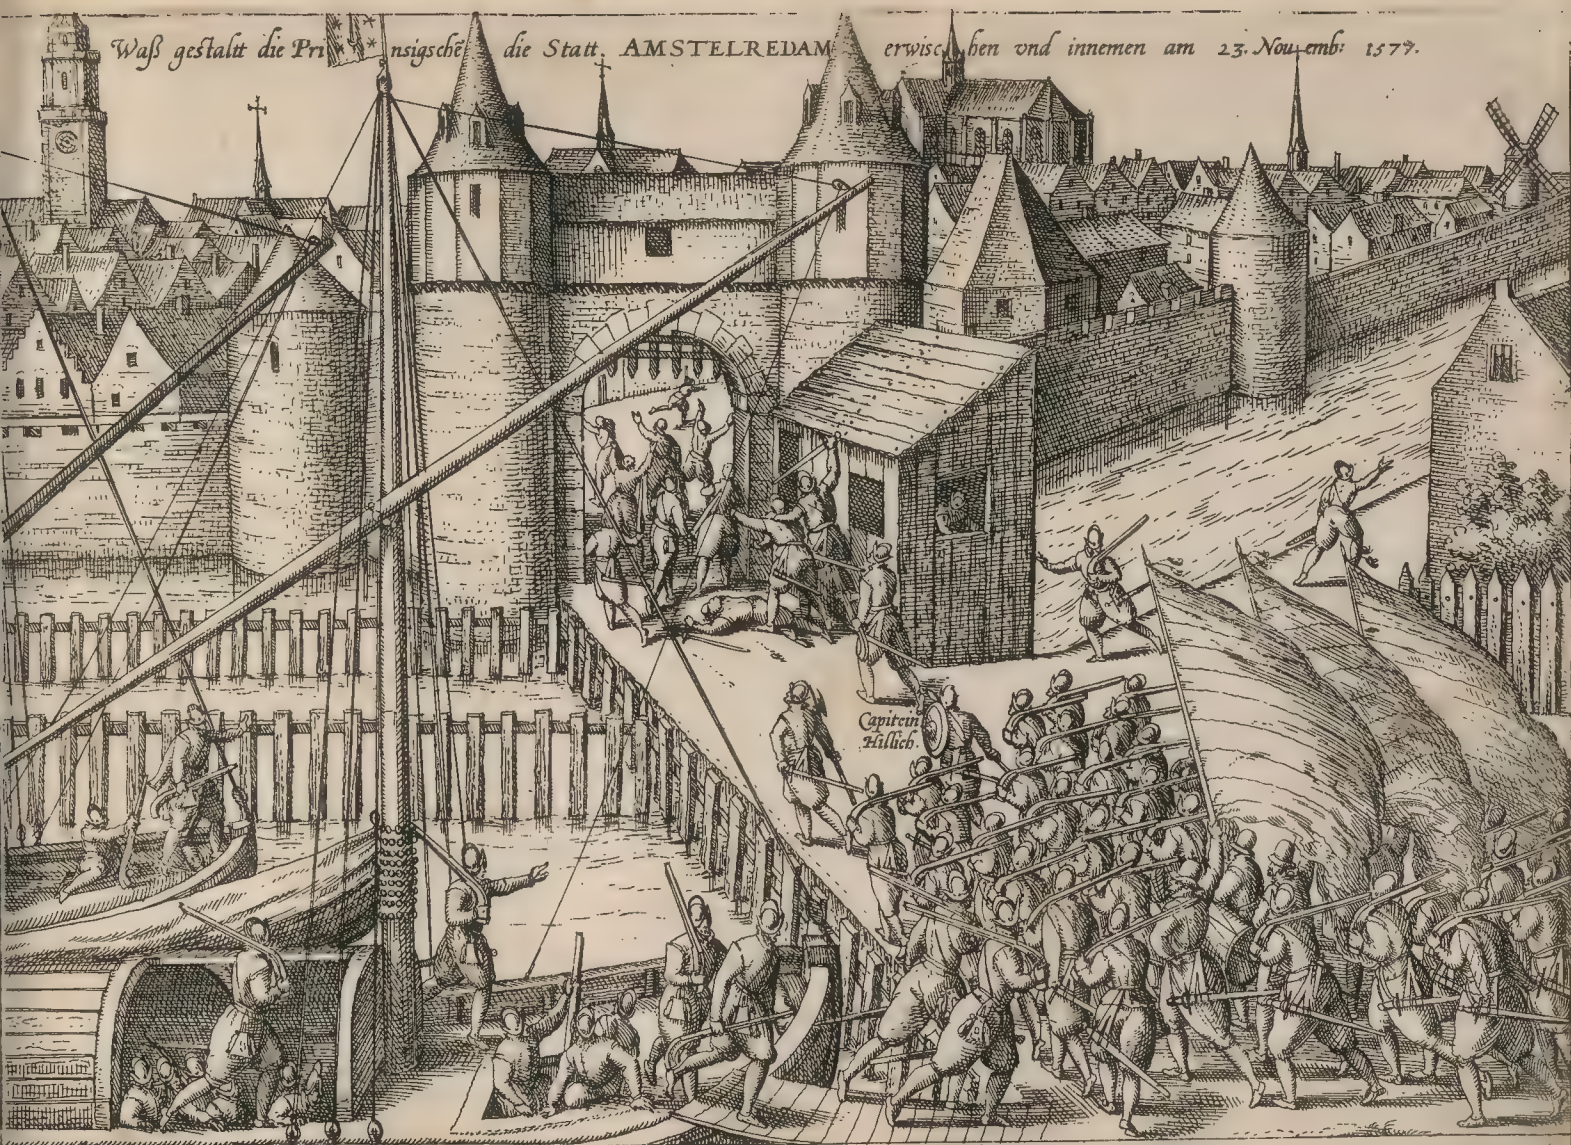 Waß gestaltt die Prinnsigschē die Statt. AMSTELREDAM erwischen vnd innemen am 23. Nouemb: 1577.
Capitein
Hillich.